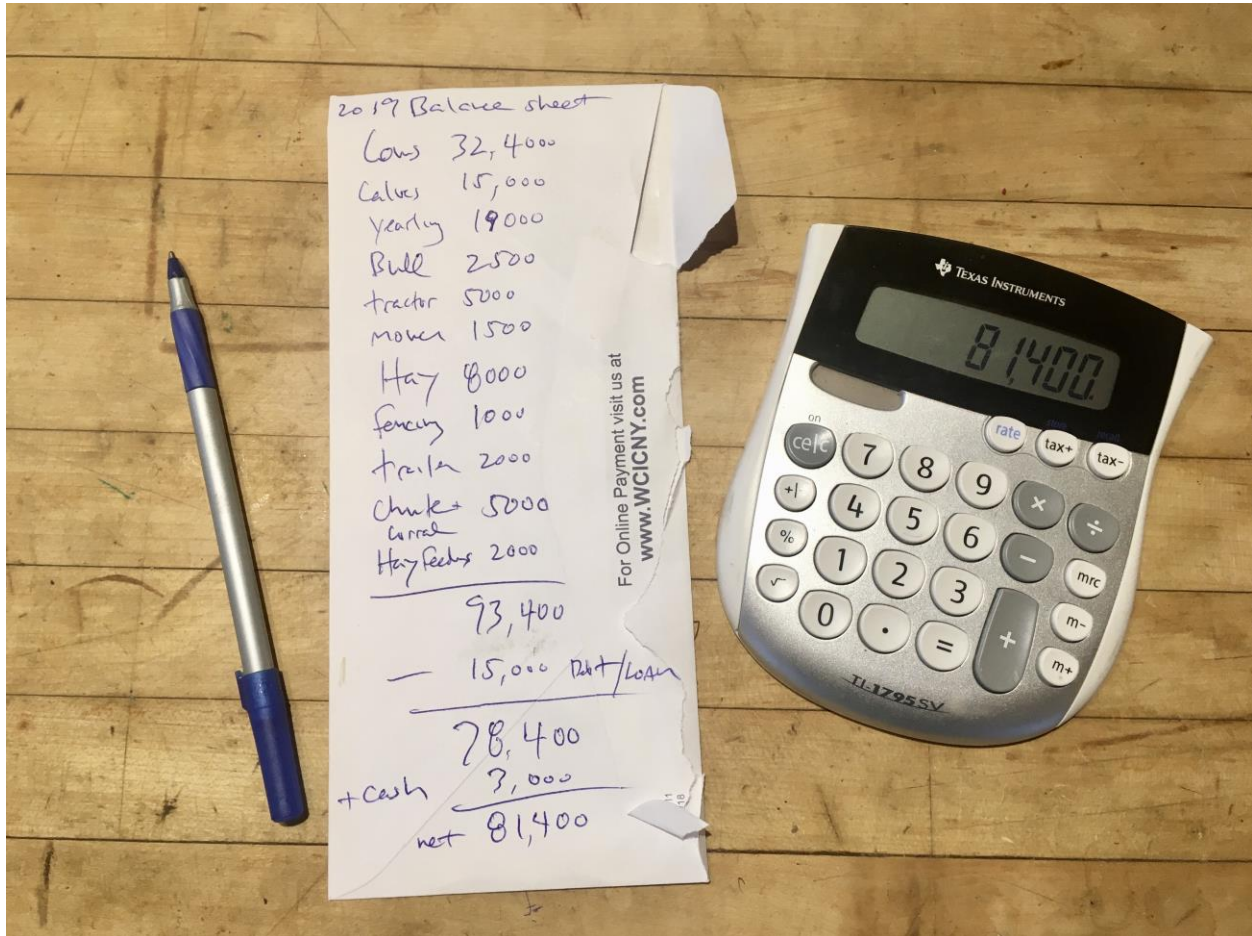 2019 Balance sheet
Cows 32,4000
Calves 15,000
Yearling 19000
Bull 2500
tractor 5000
mower 1500
Hay 8000
fencing 1000
trailer 2000
Chute + 5000
Corral
Hay feeders 2000
93,400
— 15,000 Debt/LOAN
78,400
+ Cash 3,000
net 81,400
For Online Payment visit us at
www.WCICNY.com
TEXAS INSTRUMENTS
81,400.
on
rate
tax+
tax-
ce/c
7 8 9 × ÷
+|-
4 5 6 −
%
1 2 3
mrc
√
0 . = +
m-
m+
TI-1795 SV